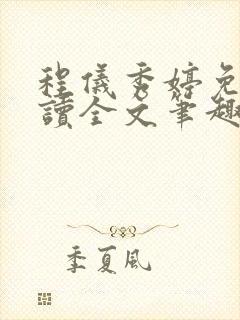 程儀秀婷免
讀全文筆趣
季夏风